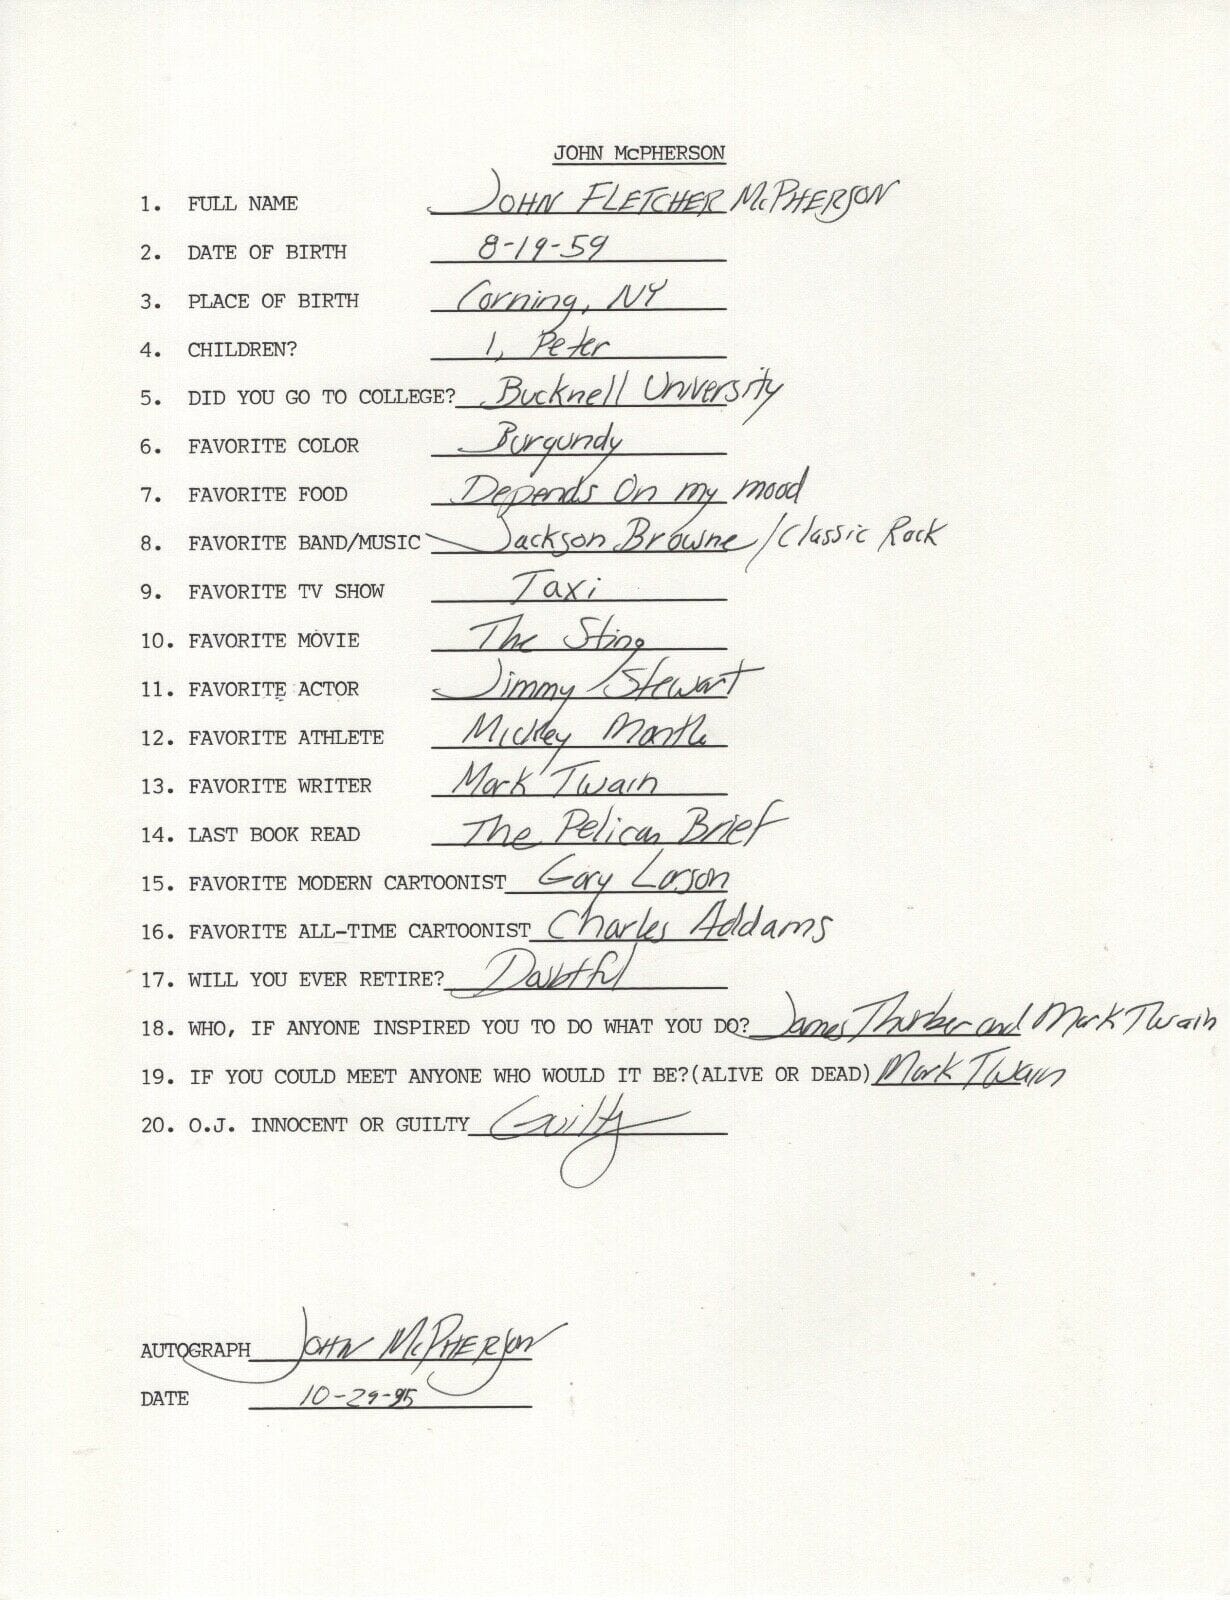 JOHN McPHERSON
1. FULL NAME John Fletcher McPherson
2. DATE OF BIRTH 8-19-59
3. PLACE OF BIRTH Corning, NY
4. CHILDREN? 1, Peter
5. DID YOU GO TO COLLEGE? Bucknell University
6. FAVORITE COLOR Burgundy
7. FAVORITE FOOD Depends On my mood
8. FAVORITE BAND/MUSIC Jackson Browne/Classic Rock
9. FAVORITE TV SHOW Taxi
10. FAVORITE MOVIE The Sting
11. FAVORITE ACTOR Jimmy Stewart
12. FAVORITE ATHLETE Mickey Mantle
13. FAVORITE WRITER Mark Twain
14. LAST BOOK READ The Pelican Brief
15. FAVORITE MODERN CARTOONIST Gary Larson
16. FAVORITE ALL-TIME CARTOONIST Charles Addams
17. WILL YOU EVER RETIRE? Doubtful
18. WHO, IF ANYONE INSPIRED YOU TO DO WHAT YOU DO? James Thurber and Mark Twain
19. IF YOU COULD MEET ANYONE WHO WOULD IT BE?(ALIVE OR DEAD) Mark Twain
20. O.J. INNOCENT OR GUILTY Guilty
AUTOGRAPH John McPherson
DATE 10-29-95